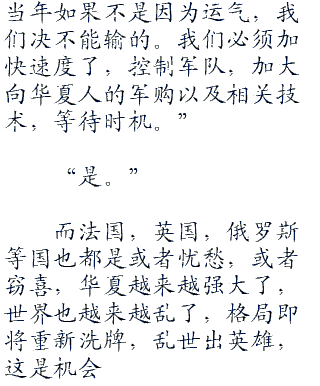 当年如果不是因为运气，我
们决不能输的。我们必须加
快速度了，控制军队，加大
向华夏人的军购以及相关技
术，等待时机。”
“是。”
而法国，英国，俄罗斯
等国也都是或者忧愁，或者
窃喜，华夏越来越强大了，
世界也越来越乱了，格局即
将重新洗牌，乱世出英雄，
这是机会